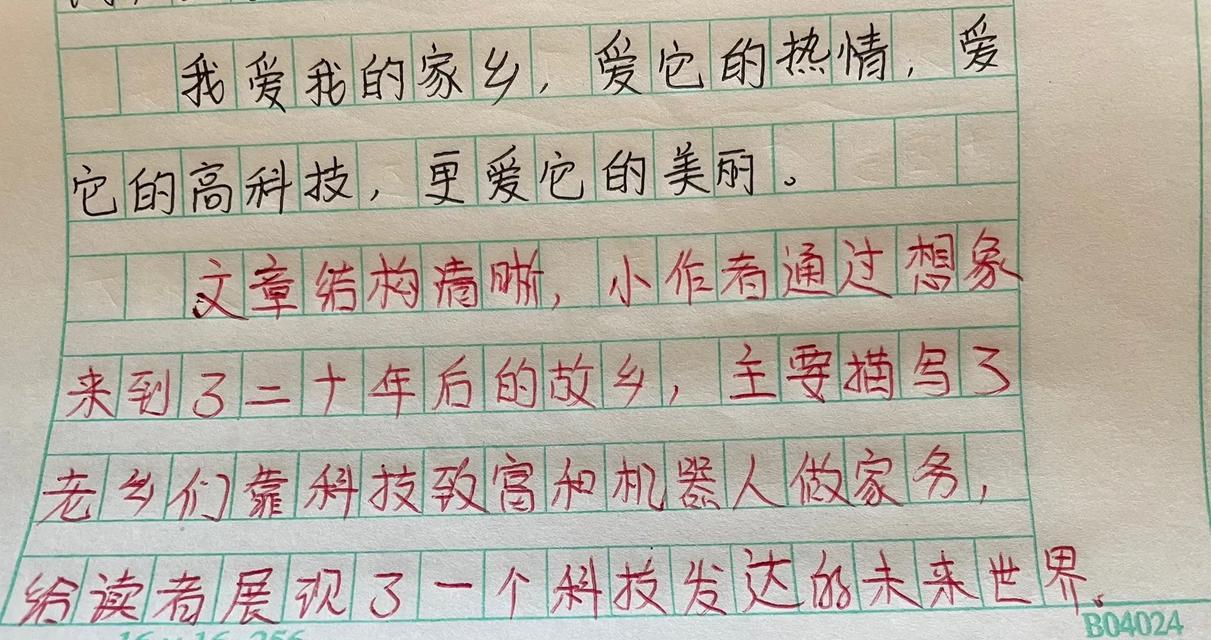 我爱我的家乡，爱它的热情，爱
它的高科技，更爱它的美丽。
文章结构清晰，小作者通过想象
来到了二十年后的故乡，主要描写了
老乡们靠科技致富和机器人做家务，
给读者展现了一个科技发达的未来世界。
B04024